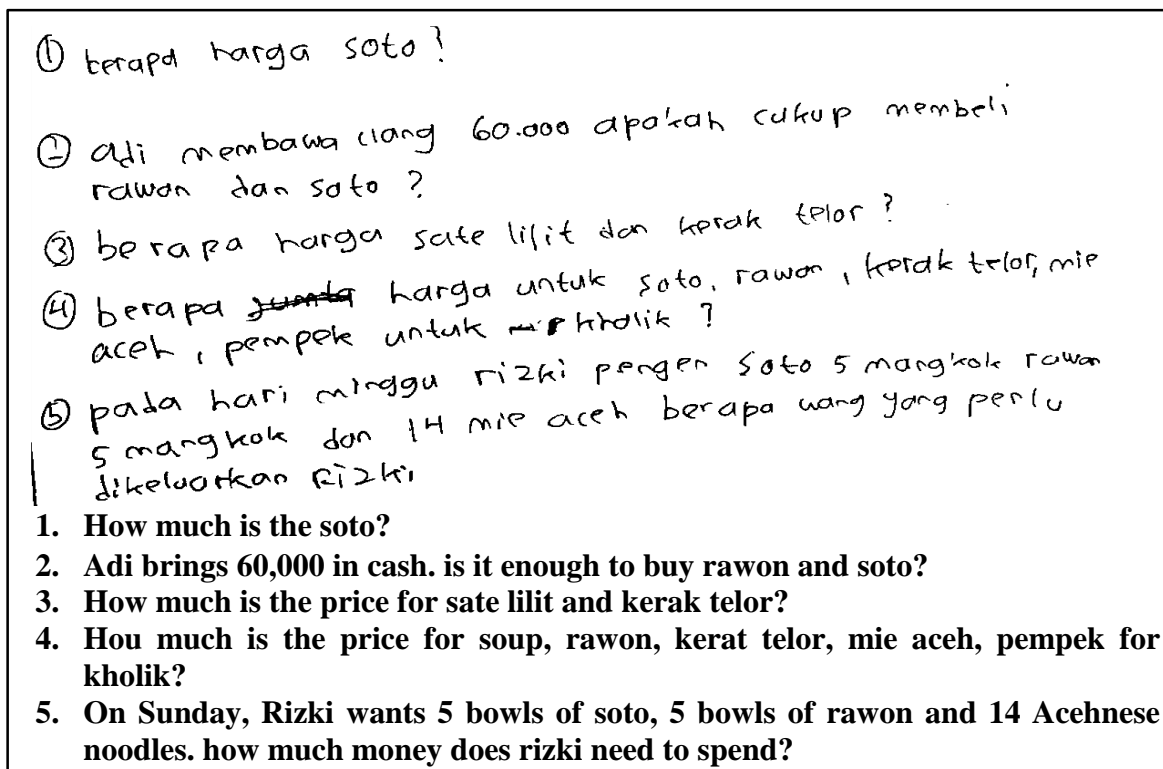 ① berapa harga soto?
② adi membawa uang 60.000 apakah cukup membeli
rawon dan soto ?
③ berapa harga sate lilit dan kerak telor ?
④ berapa jumla harga untuk soto, rawon, kerak telor, mie
aceh, pempek untuk kholik ?
⑤ pada hari minggu rizki pengen soto 5 mangkok rawon
5 mangkok dan 14 mie aceh berapa uang yang perlu
dikeluarkan Rizki
1. How much is the soto?
2. Adi brings 60,000 in cash. is it enough to buy rawon and soto?
3. How much is the price for sate lilit and kerak telor?
4. Hou much is the price for soup, rawon, kerat telor, mie aceh, pempek for
kholik?
5. On Sunday, Rizki wants 5 bowls of soto, 5 bowls of rawon and 14 Acehnese
noodles. how much money does rizki need to spend?